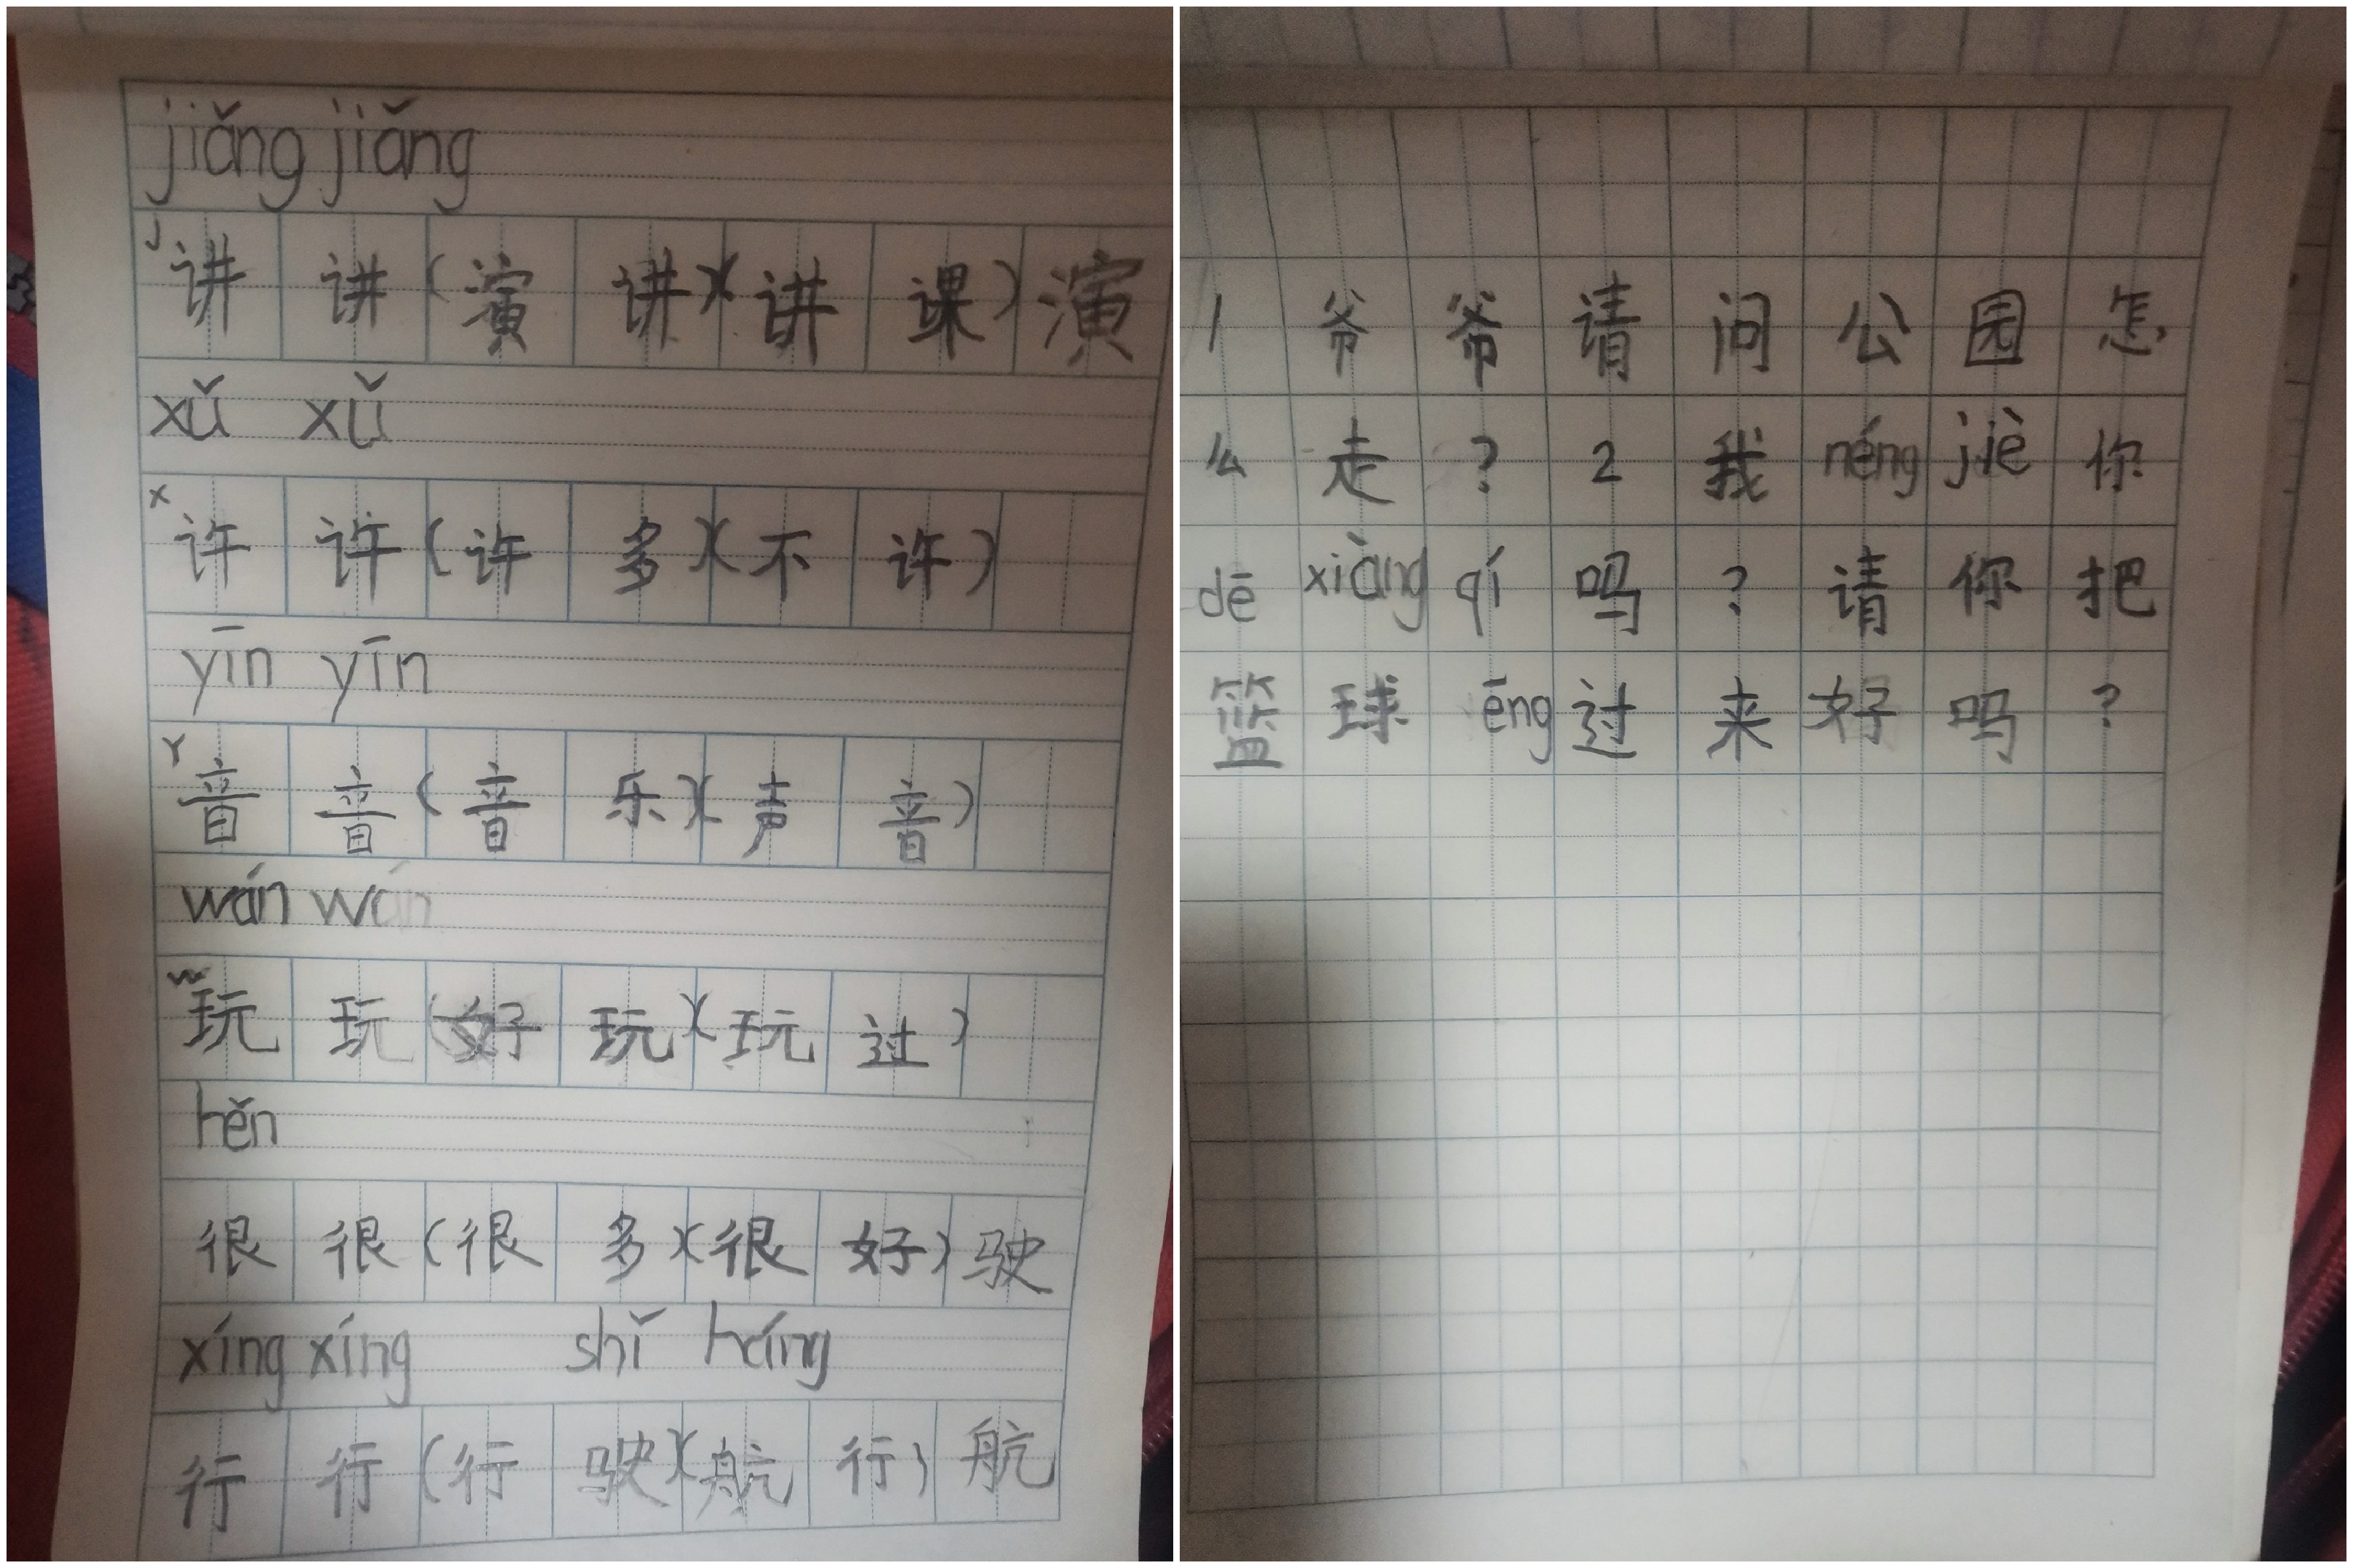 jiǎng jiǎng
j 讲 讲 (演 讲)(讲 课) 演
xǔ xǔ
x 许 许 (许 多)(不 许)
yīn yīn
Y 音 音 (音 乐)(声 音)
wán wán
w 玩 玩 (好 玩)(玩 过)
hěn
很 很 (很 多)(很 好) 驶
xíng xíng shǐ háng
行 行 (行 驶)(航 行) 航
1 爷 爷 请 问 公 园 怎
么 走 ? 2 我 néng jiè 你
dē xiàng qí 吗 ? 请 你 把
篮 球 ēng 过 来 好 吗 ?